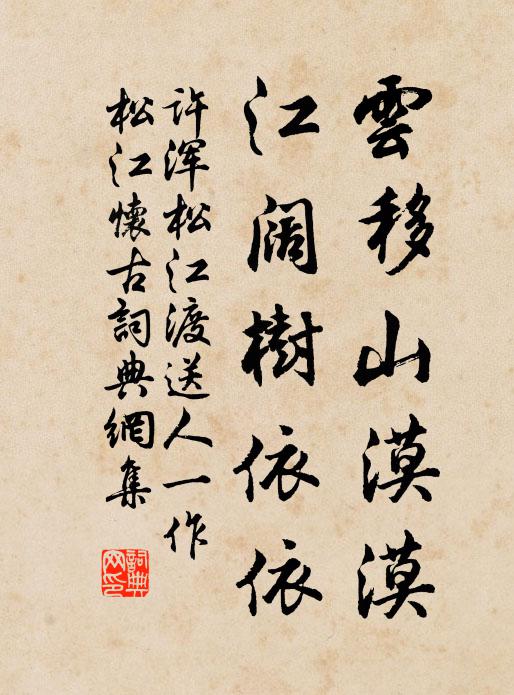 雲移山漠漠
江阔樹依依
许渾松江渡送人一作
松江懷古詞典網集
詞典
网印